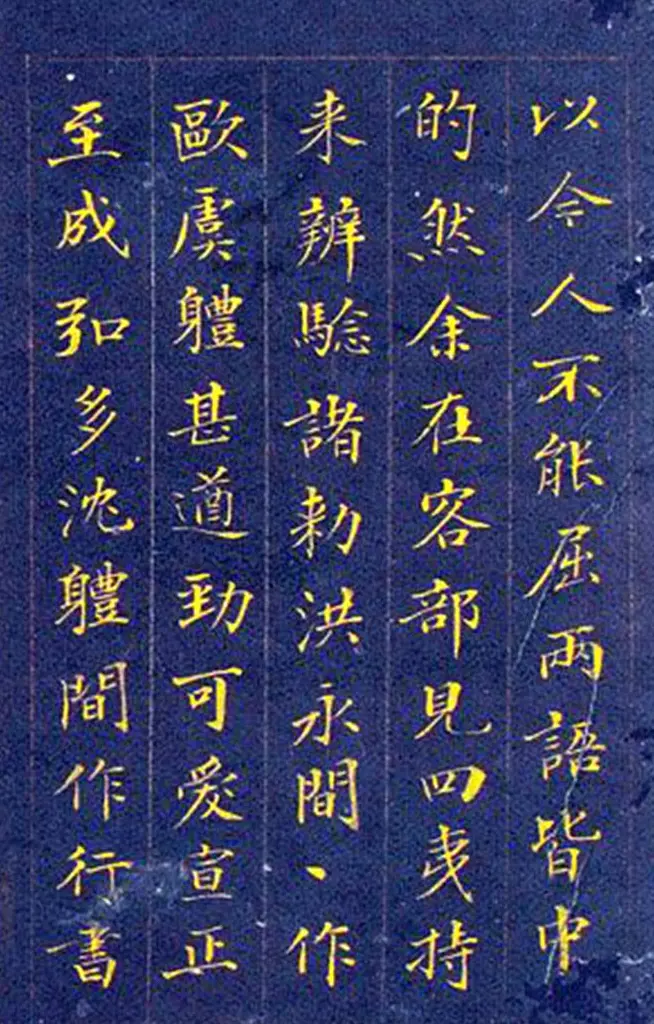 以今人不能屈兩語皆中
的然余在容部見四夷持
来辨騐諸勅洪永間、作
歐虞軆甚遒勁可愛宣正
至成弘多沈軆間作行書